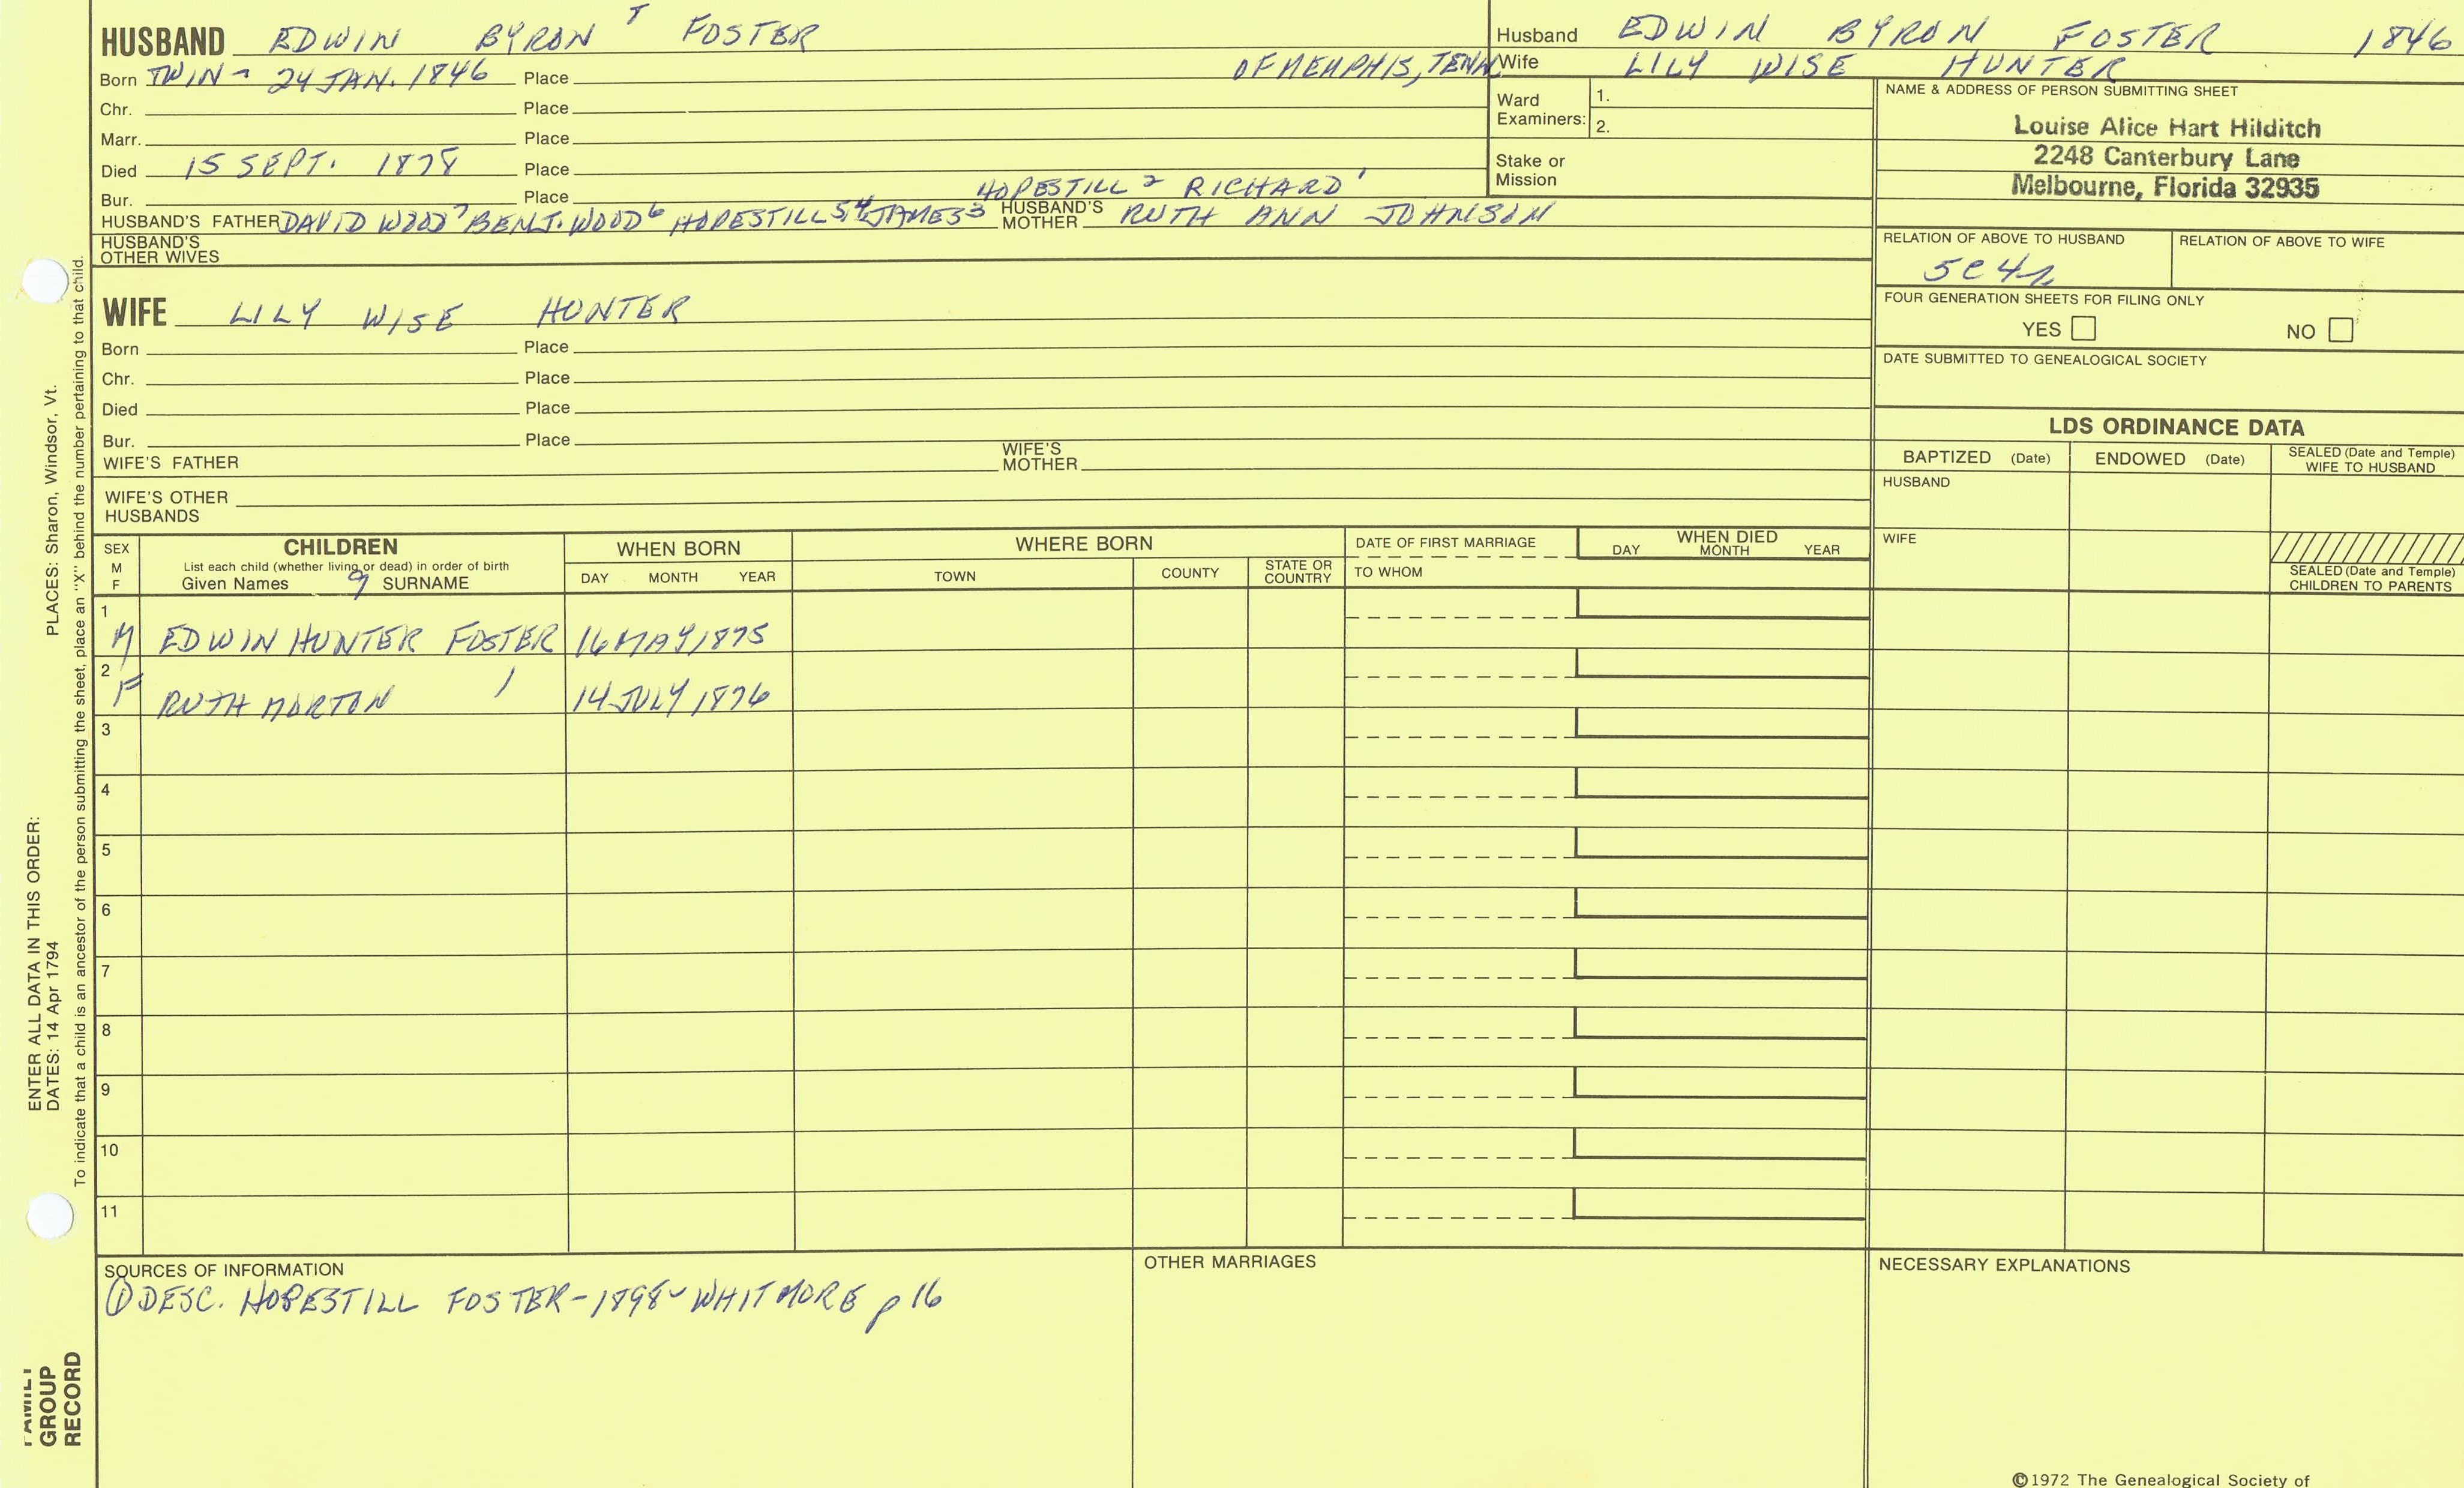 HUSBAND EDWIN BYRON FOSTER
Husband EDWIN BYRON FOSTER 1846
OF MEMPHIS, TENN
Wife LILY WISE HUNTER
Born TWIN - 24 JAN. 1846 Place
Chr. Place
Marr. Place
Died 15 SEPT. 1878 Place
Bur. Place
HOPESTILL 2 RICHARD 1
HUSBAND'S FATHER DAVID WOOD 7 BENJ. WOOD 6 HOPESTILL 5,4 JAMES 3 HUSBAND'S MOTHER RUTH ANN JOHNSON
HUSBAND'S OTHER WIVES
Ward Examiners: 1.
2.
Stake or Mission
NAME & ADDRESS OF PERSON SUBMITTING SHEET
Louise Alice Hart Hilditch
2248 Canterbury Lane
Melbourne, Florida 32935
RELATION OF ABOVE TO HUSBAND RELATION OF ABOVE TO WIFE
5C4r
FOUR GENERATION SHEETS FOR FILING ONLY
YES NO
DATE SUBMITTED TO GENEALOGICAL SOCIETY
WIFE LILY WISE HUNTER
Born Place
Chr. Place
Died Place
Bur. Place
WIFE'S FATHER WIFE'S MOTHER
WIFE'S OTHER HUSBANDS
LDS ORDINANCE DATA
BAPTIZED (Date) ENDOWED (Date) SEALED (Date and Temple) WIFE TO HUSBAND
HUSBAND
WIFE
SEALED (Date and Temple) CHILDREN TO PARENTS
SEX M F
CHILDREN
List each child (whether living or dead) in order of birth
Given Names 9 SURNAME
WHEN BORN
DAY MONTH YEAR
WHERE BORN
TOWN COUNTY STATE OR COUNTRY
DATE OF FIRST MARRIAGE
TO WHOM
WHEN DIED
DAY MONTH YEAR
1 M EDWIN HUNTER FOSTER 16 MAY 1875
2 F RUTH MORTON 14 JULY 1876
3
4
5
6
7
8
9
10
11
SOURCES OF INFORMATION
① DESC. HOPESTILL FOSTER - 1898 - WHITMORE p 16
OTHER MARRIAGES
NECESSARY EXPLANATIONS
©1972 The Genealogical Society of
ENTER ALL DATA IN THIS ORDER:
DATES: 14 Apr 1794 PLACES: Sharon, Windsor, Vt.
To indicate that a child is an ancestor of the person submitting the sheet, place an "X" behind the number pertaining to that child.
FAMILY
GROUP
RECORD